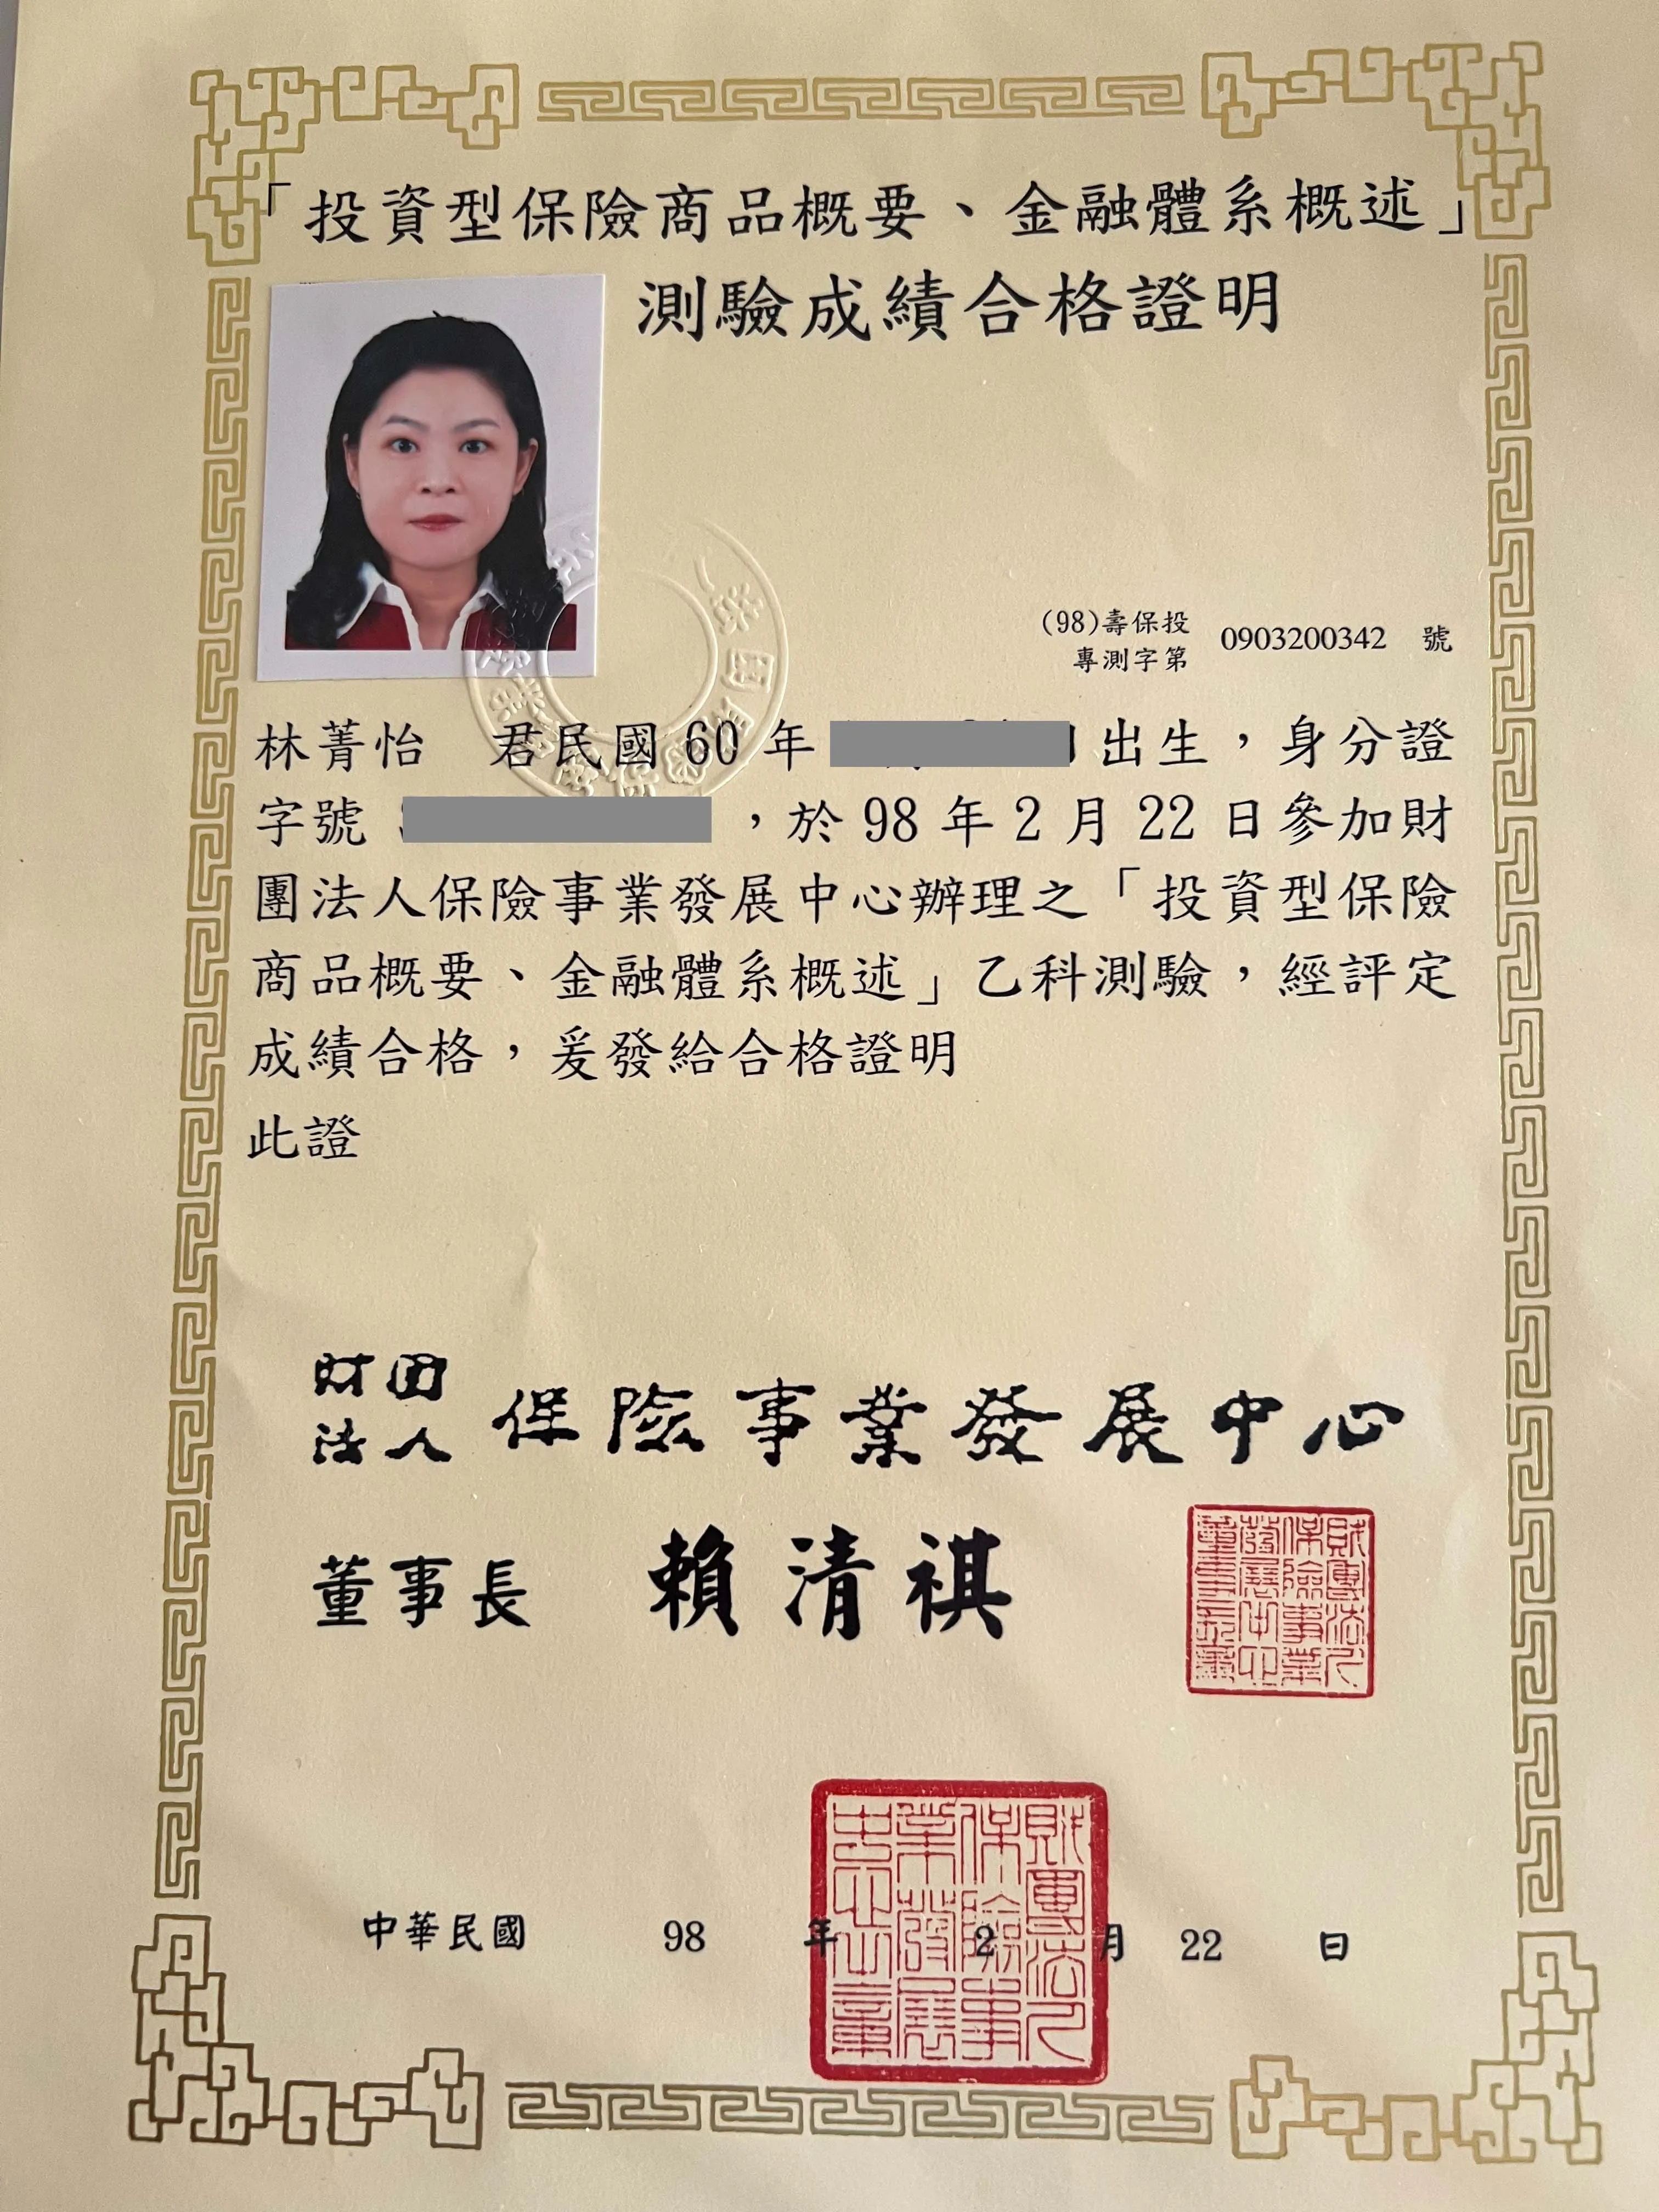 「投資型保險商品概要、金融體系概述」
測驗成績合格證明
(98)壽保投
專測字第 0903200342 號
林菁怡 君民國 60 年 出生，身分證
字號 ，於 98 年 2 月 22 日參加財
團法人保險事業發展中心辦理之「投資型保險
商品概要、金融體系概述」乙科測驗，經評定
成績合格，爰發給合格證明
此證
財團
法人 保險事業發展中心
董事長 賴清祺
財團法人
保險事業
發展中心
董事長章
中華民國 98 年 2 月 22 日
財團法人
保險事
業發展
中心章